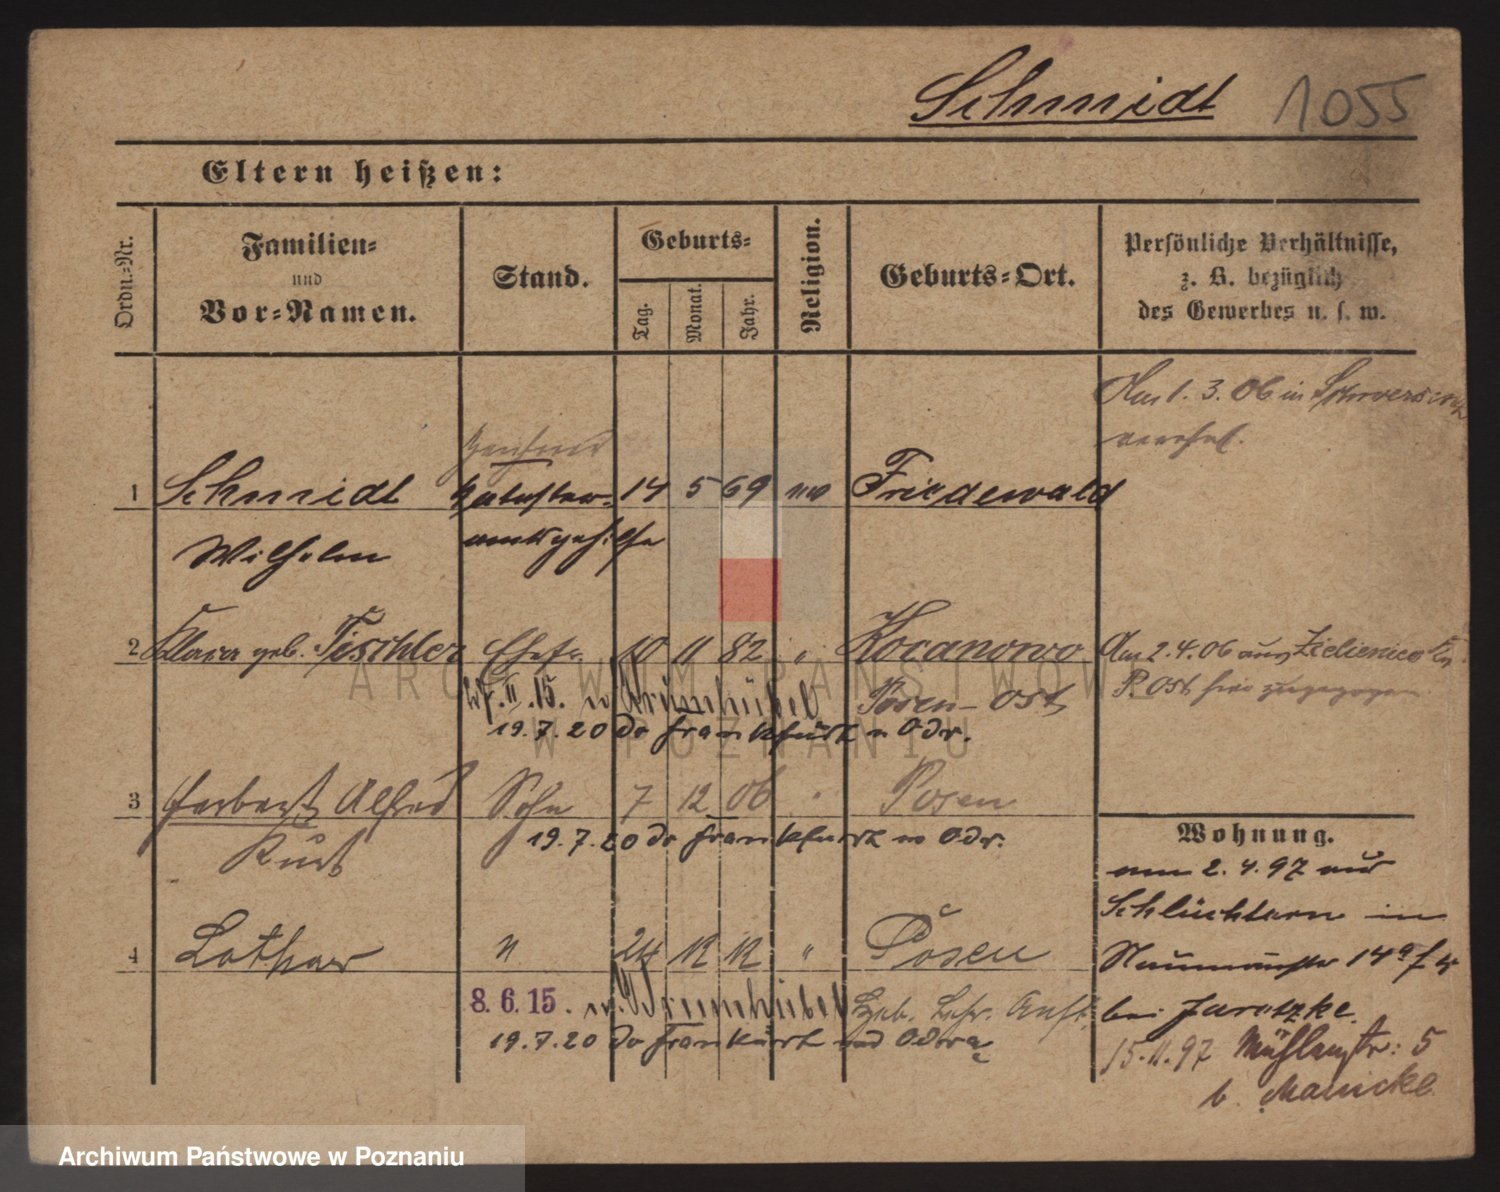 Schmidt 1055
Eltern heißen:
Ordn.-Nr.
Familien-
und
Vor-Namen.
Stand.
Geburts-
Tag.
Monat.
Jahr.
Religion.
Geburts-Ort.
Persönliche Verhältnisse,
z. B. bezüglich
des Gewerbes u. s. w.
Am 1. 3. 06 in Schwersenz
verehel.
1 Schmidt Kataster- 14 5 69 Friedewald
Wilhelm amtsgehilfe
2 Klara geb. Tischler Ehefr. 10 11 82 " Kocanowo
Am 2. 4. 06 aus
Posen-Ost
P. Ost hier zugezogen
15. n. Krumhübel
19.7.20 do Frankfurt a Odr.
3 Herbert Alfred Sohn 7 12 06 " Posen
Kurt
19.7.20 do Frankfurt a Odr.
4 Lothar " 24 12 12 " Posen
8. 6. 15. n. Krumhübel Heb. Lehr. Anst.
19.7.20 do Frankfurt Odera
Wohnung.
am 2. 4. 97 aus
Schlüchtern in
Naumannstr 14a
bei Jaretzke.
15. 11. 97 Mühlenstr: 5
b. Manicke
ARCHIWUM PAŃSTWOWE
W POZNANIU
Archiwum Państwowe w Poznaniu